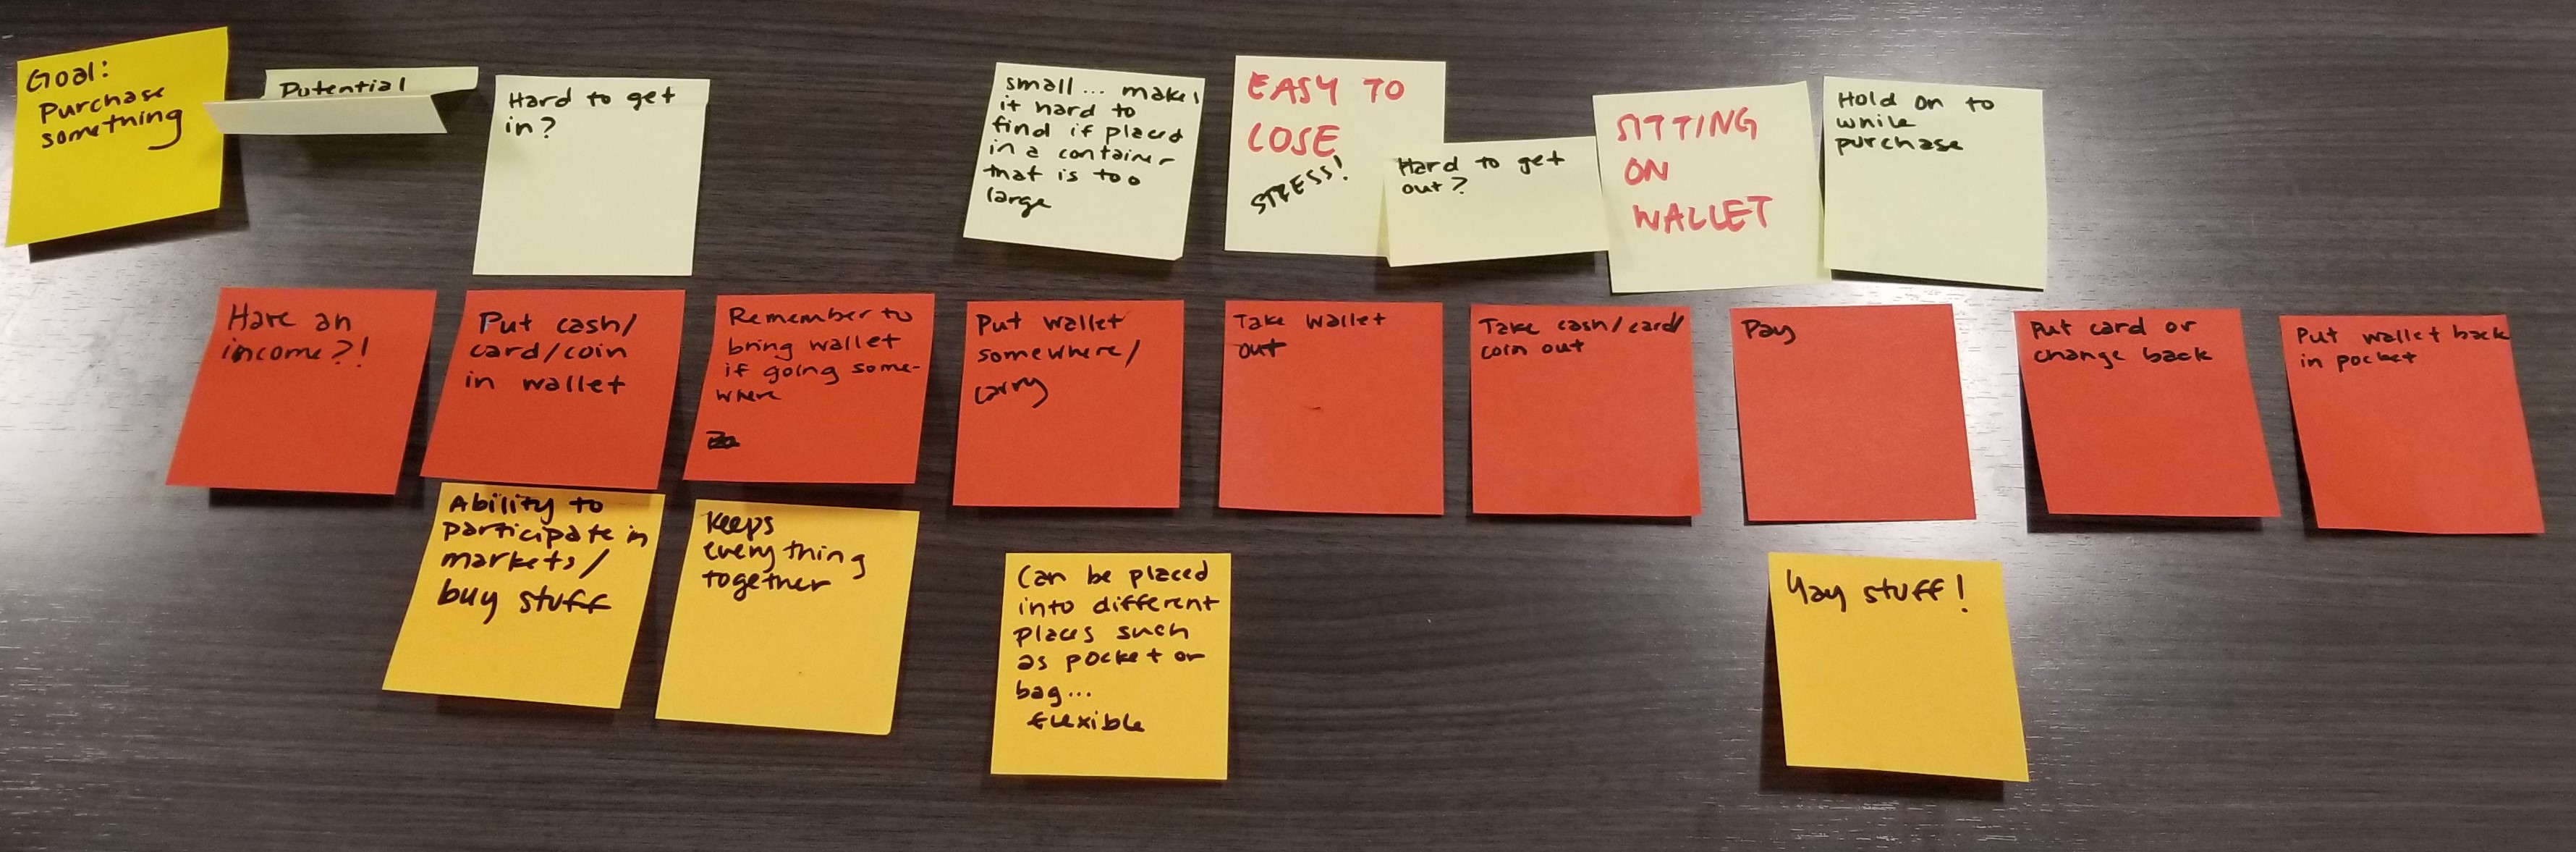 Goal:
Purchase
something
Potential
Hard to get
in?
small... makes
it hard to
find if placed
in a container
that is too
large
EASY TO
LOSE
STRESS!
Hard to get
out?
SITTING
ON
WALLET
Hold on to
while
purchase
Have an
income?!
Put cash/
card/coin
in wallet
Remember to
bring wallet
if going some-
where
Put wallet
somewhere/
carry
Take wallet
out
Take cash/card/
coin out
Pay
Put card or
change back
Put wallet back
in pocket
Ability to
participate in
markets/
buy stuff
Keeps
everything
together
Can be placed
into different
places such
as pocket or
bag...
flexible
Yay stuff!